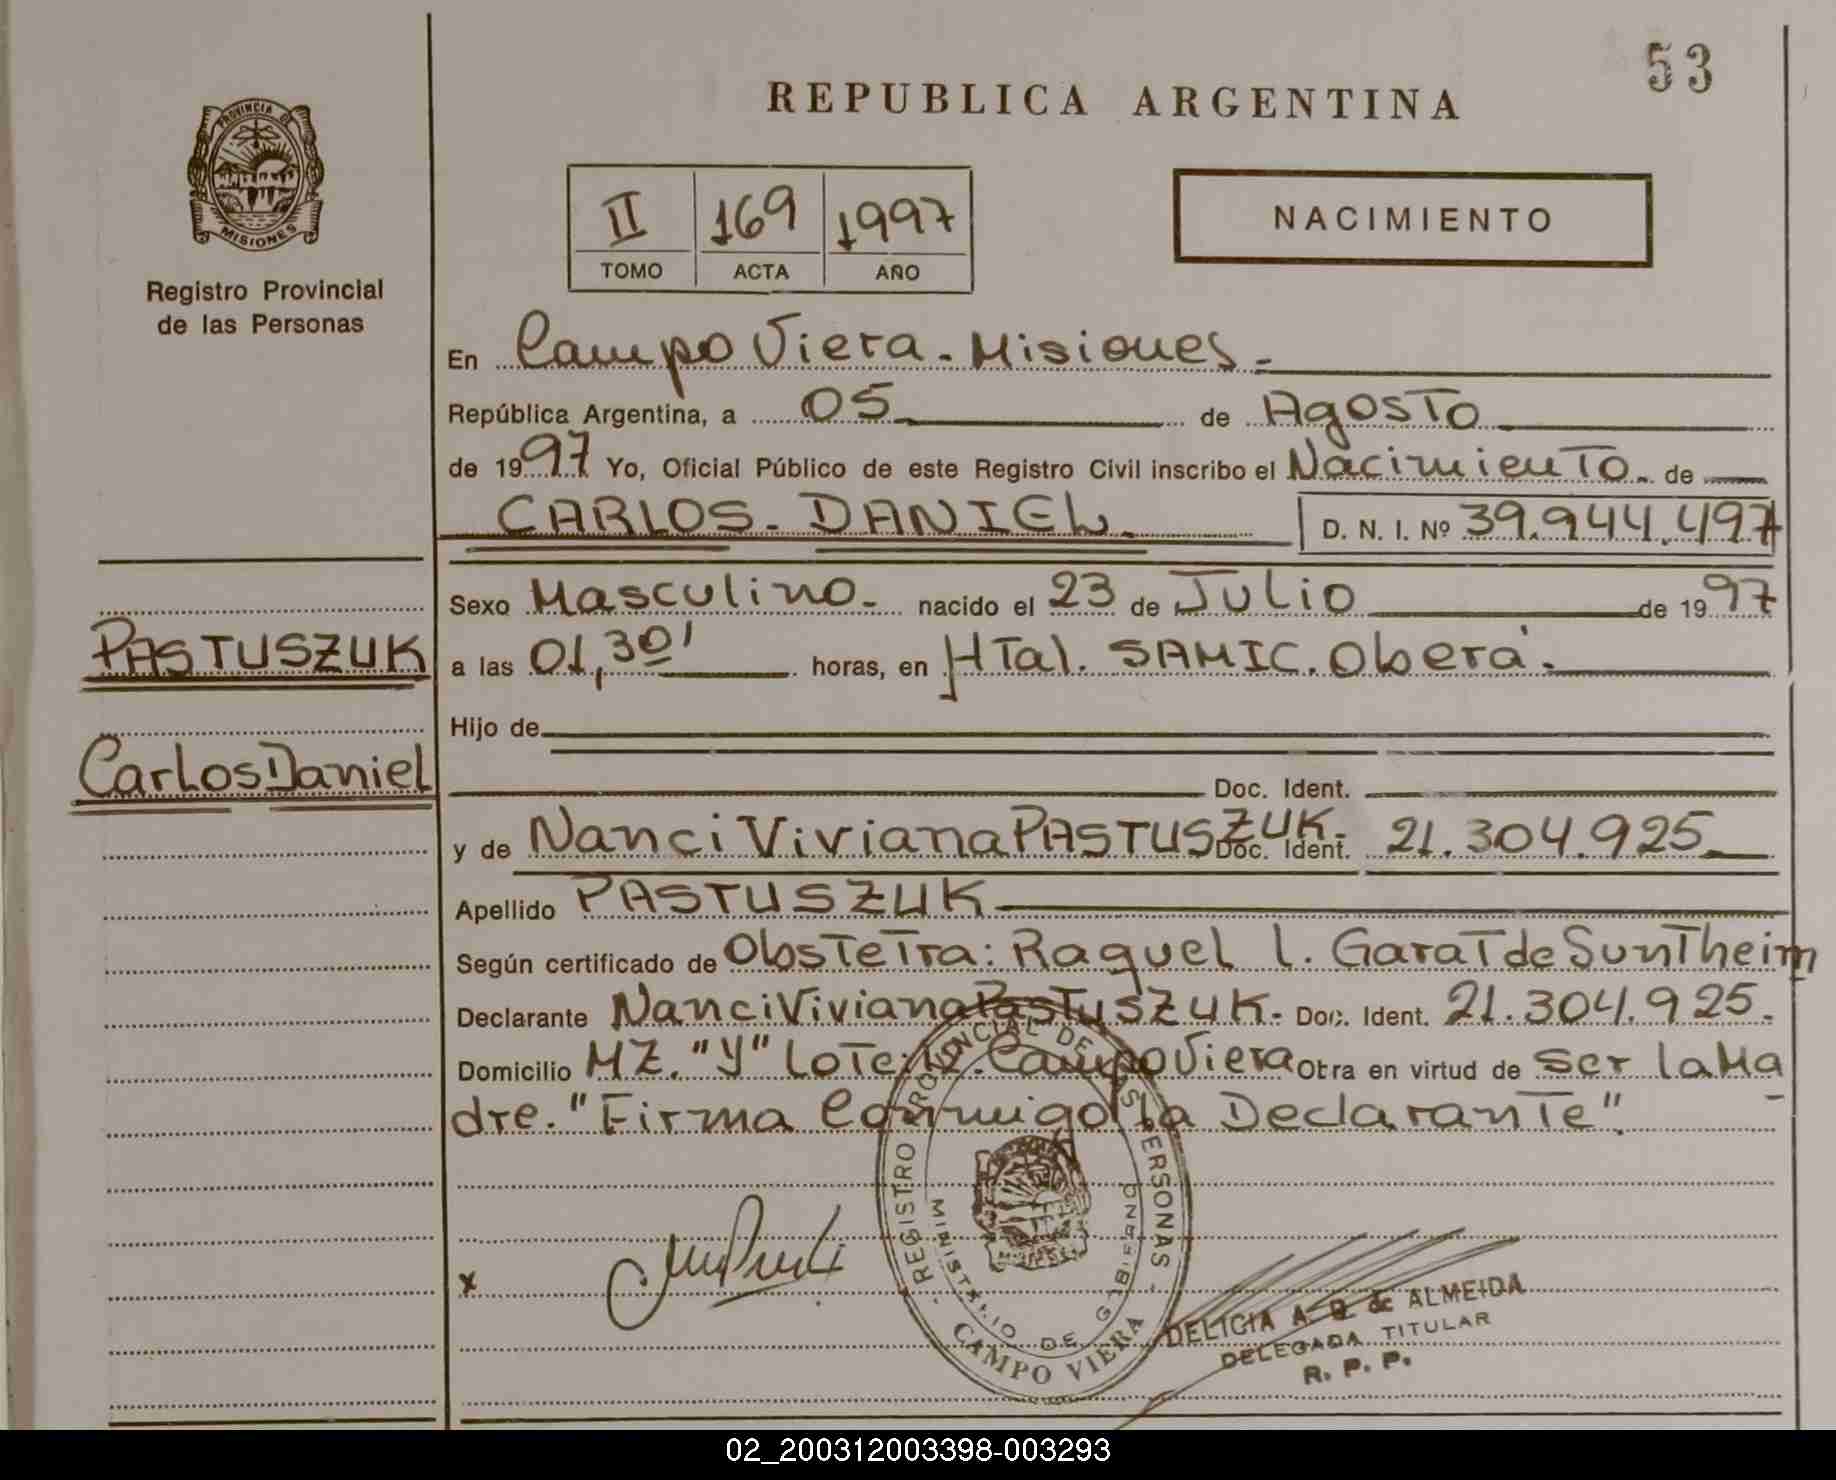 53
REPUBLICA ARGENTINA
PROVINCIA DE
MISIONES
Registro Provincial
de las Personas
II 169 1997
TOMO ACTA AÑO
NACIMIENTO
En Campo Viera - Misiones -
República Argentina, a 05 de Agosto
de 1997 Yo, Oficial Público de este Registro Civil inscribo el Nacimiento. de
CARLOS - DANIEL. D. N. I. Nº 39.944.497
Sexo Masculino. nacido el 23 de Julio de 1997
PASTUSZUK
a las 01,30' horas, en HTal. SAMIC. Oberá.
Hijo de
Carlos Daniel
Doc. Ident.
y de Nanci Viviana PASTUSZUK. Doc. Ident. 21.304.925
Apellido PASTUSZUK
Según certificado de Obstetra: Raquel L. Garat de Suntheim
Declarante Nanci Viviana PastusZUK. Doc. Ident. 21.304.925.
Domicilio MZ. "Y" Lote: Campo Viera Obra en virtud de ser la Ma
dre. "Firma Conmigo la Declarante".
REGISTRO PROVINCIAL DE LAS PERSONAS
MINISTERIO DE GOBIERNO
CAMPO VIERA
x
DELICIA A. de ALMEIDA
DELEGADA TITULAR
R. P. P.
02_200312003398-003293